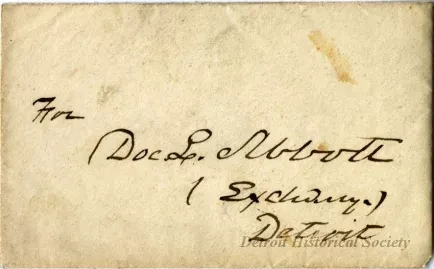 For
Doc L. Abbott
(Exchange.)
Detroit
Detroit Historical Society